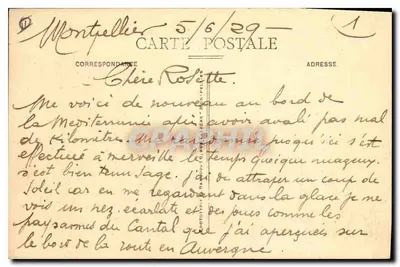 Montpellier 5/6/29-
1
CARTE POSTALE
CORRESPONDANCE
ADRESSE
Chère Rosette.
Me voici de nouveau au bord de
la Méditerranée après avoir avalé pas mal
de kilomètres. jusqu'ici s'est
effectué à merveille le temps quoique nuageux
s'est bien tenu sage. j'ai dû attraper un coup de
Soleil car en me regardant dans la glace je me
vois un nez écarlate et des joues comme les
paysannes du Cantal que j'ai aperçues sur
le bord de la route en Auvergne.